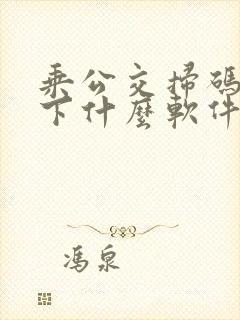 乘公交掃碼
下什麼軟件
馮泉